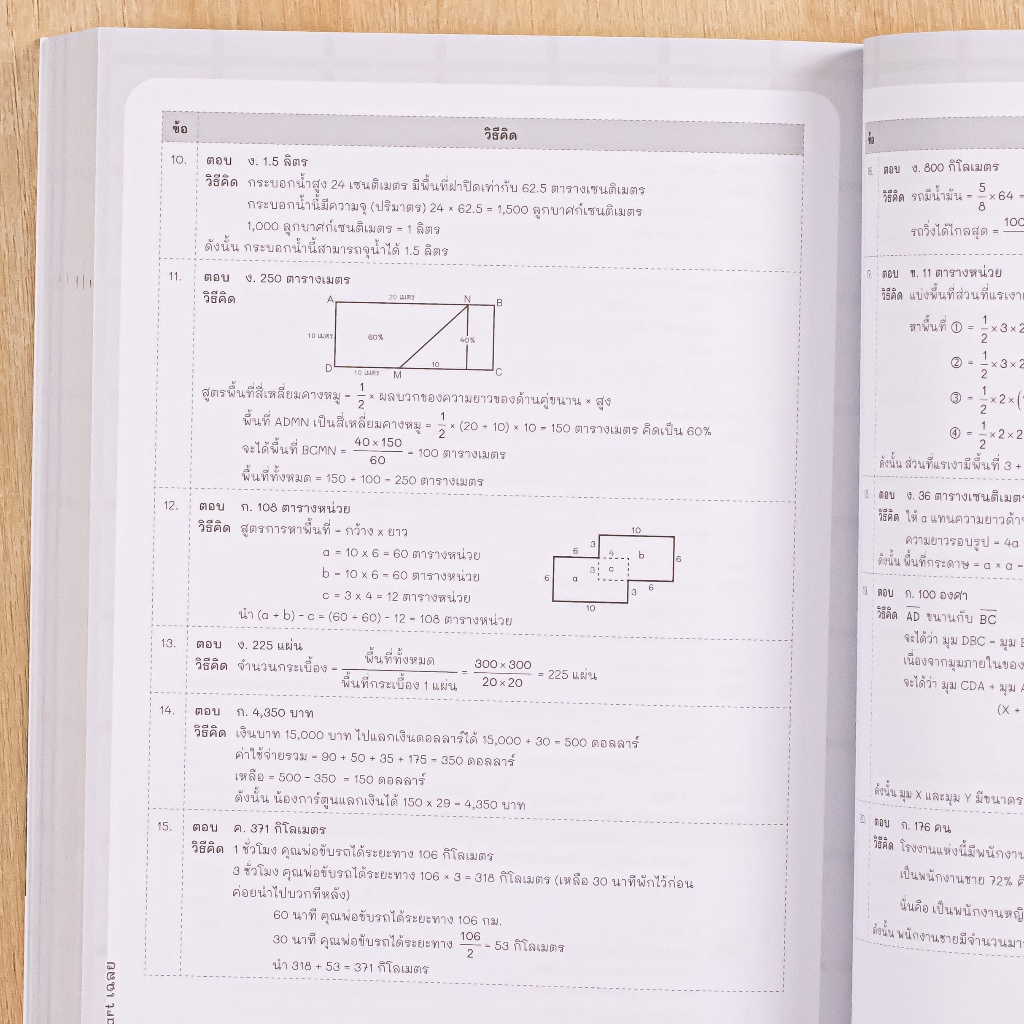 ข้อ วิธีคิด
10. ตอบ ง. 1.5 ลิตร
วิธีคิด กระบอกน้ำสูง 24 เซนติเมตร มีพื้นที่ฝาปิดเท่ากับ 62.5 ตารางเซนติเมตร
กระบอกน้ำนี้มีความจุ (ปริมาตร) 24 × 62.5 = 1,500 ลูกบาศก์เซนติเมตร
1,000 ลูกบาศก์เซนติเมตร = 1 ลิตร
ดังนั้น กระบอกน้ำนี้สามารถจุน้ำได้ 1.5 ลิตร
11. ตอบ ง. 250 ตารางเมตร
วิธีคิด
A 20 เมตร N B
10 เมตร 60% 40%
D 10 เมตร M 10 C
สูตรพื้นที่สี่เหลี่ยมคางหมู = 1/2 × ผลบวกของความยาวของด้านคู่ขนาน × สูง
พื้นที่ ADMN เป็นสี่เหลี่ยมคางหมู = 1/2 × (20 + 10) × 10 = 150 ตารางเมตร คิดเป็น 60%
จะได้พื้นที่ BCMN = 40 × 150/60 = 100 ตารางเมตร
พื้นที่ทั้งหมด = 150 + 100 = 250 ตารางเมตร
12. ตอบ ก. 108 ตารางหน่วย
วิธีคิด สูตรการหาพื้นที่ = กว้าง x ยาว
a = 10 x 6 = 60 ตารางหน่วย
b = 10 x 6 = 60 ตารางหน่วย
c = 3 x 4 = 12 ตารางหน่วย
นำ (a + b) - c = (60 + 60) - 12 = 108 ตารางหน่วย
10
3
6 4 b 6
3 c
6 a 3 6
10
13. ตอบ ง. 225 แผ่น
วิธีคิด จำนวนกระเบื้อง = พื้นที่ทั้งหมด/พื้นที่กระเบื้อง 1 แผ่น = 300 × 300/20 × 20 = 225 แผ่น
14. ตอบ ก. 4,350 บาท
วิธีคิด เงินบาท 15,000 บาท ไปแลกเงินดอลลาร์ได้ 15,000 ÷ 30 = 500 ดอลลาร์
ค่าใช้จ่ายรวม = 90 + 50 + 35 + 175 = 350 ดอลลาร์
เหลือ = 500 - 350 = 150 ดอลลาร์
ดังนั้น น้องการ์ตูนแลกเงินได้ 150 x 29 = 4,350 บาท
15. ตอบ ค. 371 กิโลเมตร
วิธีคิด 1 ชั่วโมง คุณพ่อขับรถได้ระยะทาง 106 กิโลเมตร
3 ชั่วโมง คุณพ่อขับรถได้ระยะทาง 106 × 3 = 318 กิโลเมตร (เหลือ 30 นาทีพักไว้ก่อน
ค่อยนำไปบวกทีหลัง)
60 นาที คุณพ่อขับรถได้ระยะทาง 106 กม.
30 นาที คุณพ่อขับรถได้ระยะทาง 106/2 = 53 กิโลเมตร
นำ 318 + 53 = 371 กิโลเมตร
art เฉลย
ตอบ ง. 800 กิโลเมตร
วิธีคิด รถมีน้ำมัน = 5/8 × 64 =
รถวิ่งได้ไกลสุด = 100
ตอบ ข. 11 ตารางหน่วย
วิธีคิด แบ่งพื้นที่ส่วนที่แรเงา
หาพื้นที่ ① = 1/2 × 3 × 2
② = 1/2 × 3 ×
③ = 1/2 × 2 × (
④ = 1/2 × 2 × 2
ดังนั้น ส่วนที่แรเงามีพื้นที่ 3 +
ตอบ ง. 36 ตารางเซนติเมตร
วิธีคิด ให้ a แทนความยาวด้าน
ความยาวรอบรูป = 4a
ดังนั้น พื้นที่กระดาษ = a × a =
ตอบ ก. 100 องศา
วิธีคิด AD ขนานกับ BC
จะได้ว่า มุม DBC = มุม
เนื่องจากมุมภายในของ
จะได้ว่า มุม CDA + มุม
(X +
ดังนั้น มุม X และมุม Y มีขนาด
ตอบ ก. 176 คน
วิธีคิด โรงงานแห่งนี้มีพนักงาน
เป็นพนักงานชาย 72%
นั่นคือ เป็นพนักงานหญิง
ดังนั้น พนักงานชายมีจำนวน